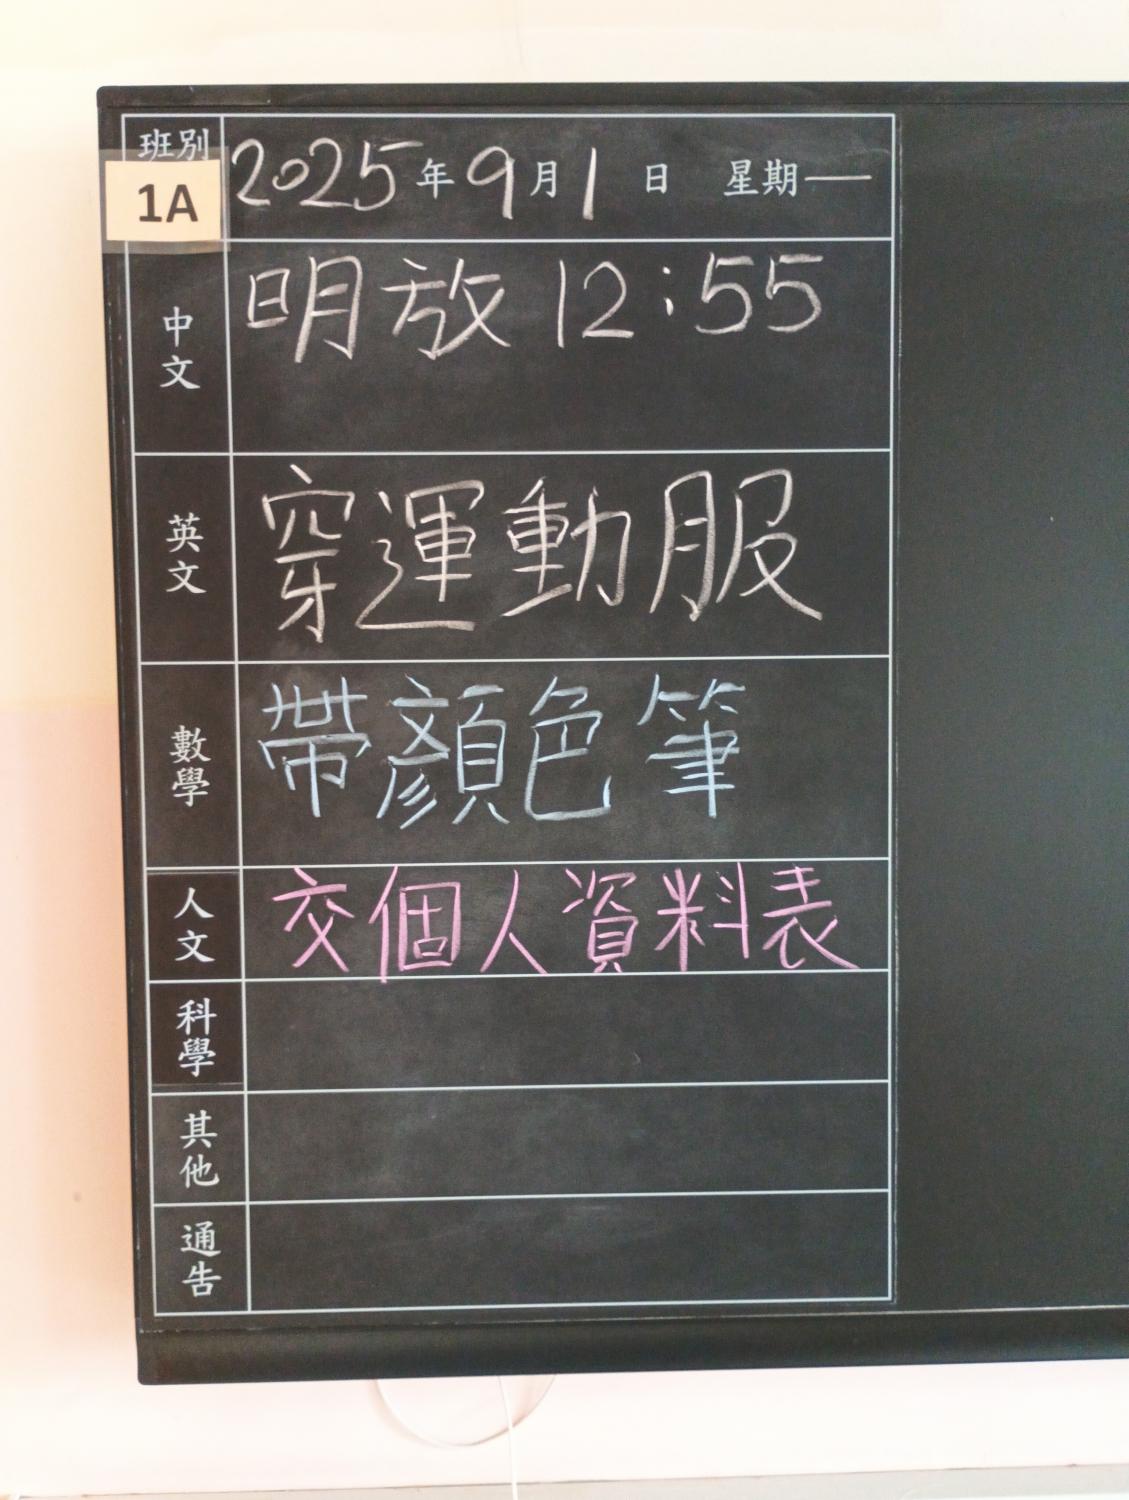 班別
1A
2025年9月1日 星期一
中文
明放 12:55
英文
穿運動服
數學
帶顏色筆
人文
交個人資料表
科學
其他
通告